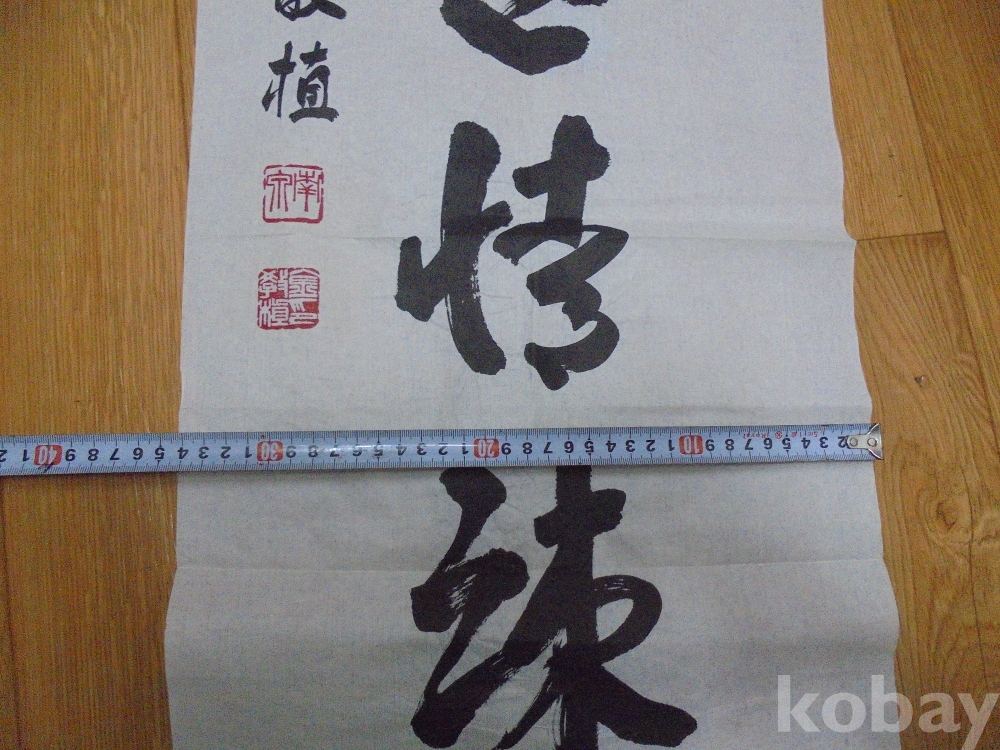 情
疎
植
南宗
金教植印
2 3 4 5 6 7 8 9 10 1 2 3 4 5 6 7 8 9 20 1 2 3 4 5 6 7 8 9 30 1 2 3 4 5 6 7 8 9 40 1 2
kobay